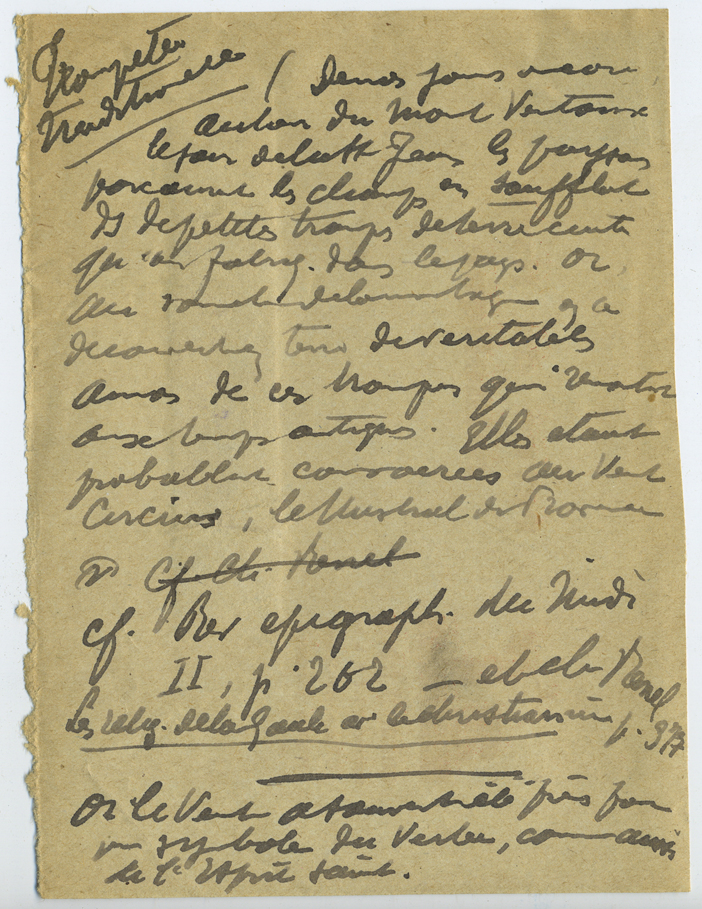 Trompettes
traditionnelles
( De nos jours encore
autour du Mont Ventoux
le jour de la St Jean les paysans
parcourent les champs en soufflant
ds de petites tromps de terre cuite
qu'on fabriq. dans le pays. Or,
au sommet de la montagne on a
découvert terre de véritables
amas de ces trompes qui remontent
aux temps antiques. Elles étaient
probablent consacrées au Vent
Circius, le Mistral des Romains
Cf. Ch. Renel
cf. Rev epigraph. du Midi
II, p. 262 — et ch. Renel
Les relig. de la Gaule av. le christianisme p. 377
Or le Vent a souvent été pris pour
un symbole du Verbe, comme aussi
de l'Esprit Saint.